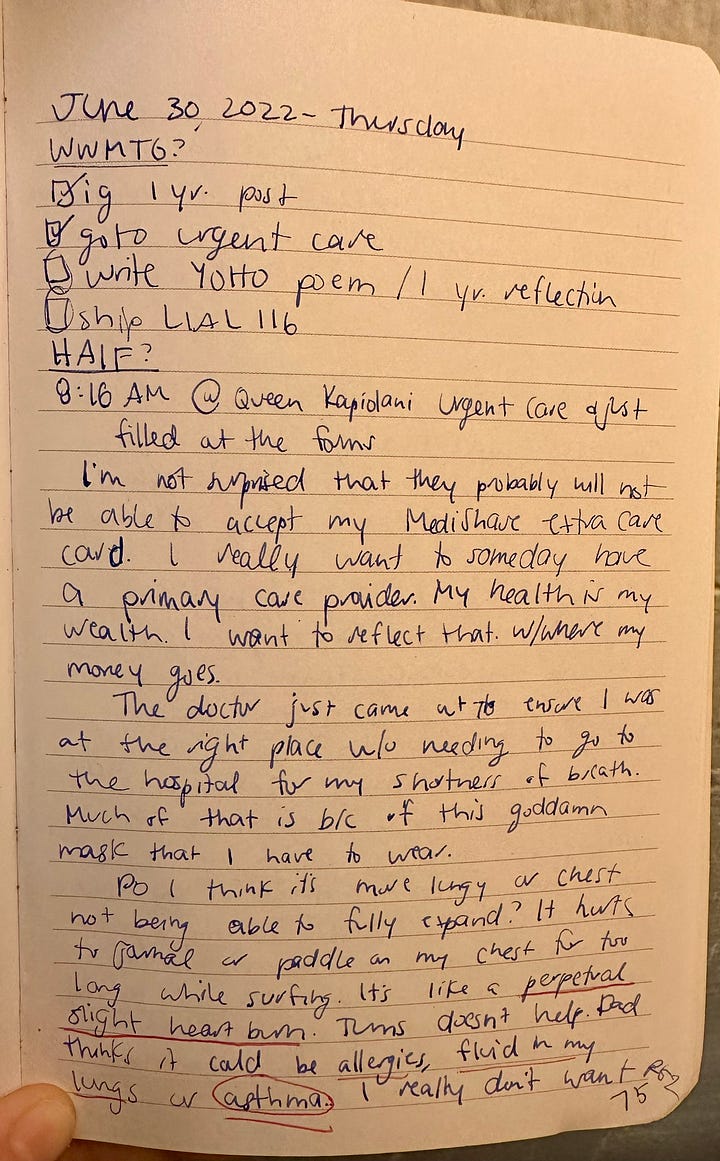 June 30, 2022 - Thursday
WWMTG?
ig 1 yr. post
go to urgent care
write YOHO poem / 1 yr. reflection
ship LIAL 116
HAIF?
8:16 AM @ Queen Kapiolani Urgent Care & just
filled out the forms
I'm not surprised that they probably will not
be able to accept my MediShare extra care
card. I really want to someday have
a primary care provider. My health is my
wealth. I want to reflect that. w/where my
money goes.
The doctor just came out to ensure I was
at the right place w/o needing to go to
the hospital for my shortness of breath.
Much of that is b/c of this goddamn
mask that I have to wear.
Do I think it's more lungy or chest
not being able to fully expand? It hurts
to journal or paddle on my chest for too
long while surfing. It's like a perpetual
slight heart burn. Tums doesn't help. Dad
thinks it could be allergies, fluid in my
lungs or asthma. I really don't want
75